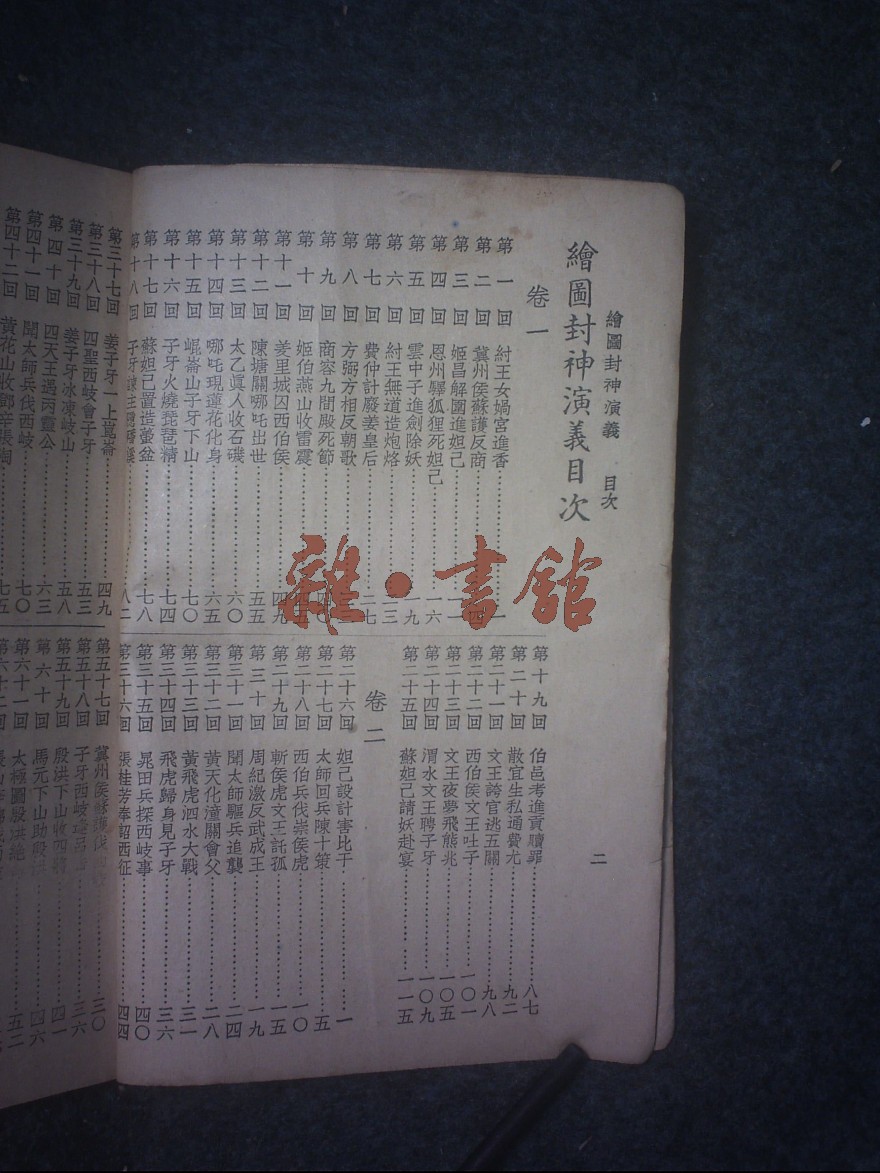 繪圖封神演義 目次
二
繪圖封神演義目次
卷一
第一回 紂王女媧宮進香 一
第二回 冀州侯蘇護反商
第三回 姬昌解圍進妲己
第四回 恩州驛狐狸死妲己 一六
第五回 雲中子進劍除妖
第六回 紂王無道造炮烙
第七回 費仲計廢姜皇后
第八回 方弼方相反朝歌
第九回 商容九間殿死節
第十回 姬伯燕山收雷震
第十一回 羑里城囚西伯侯 四九
第十二回 陳塘關哪吒出世 五五
第十三回 太乙眞人收石磯 六〇
第十四回 哪吒現蓮花化身 六五
第十五回 崐崙山子牙下山 七〇
第十六回 子牙火燒琵琶精 七四
第十七回 蘇妲己置造蠆盆 七八
第十八回 子牙 八二
第十九回 伯邑考進貢贖罪 八七
第二十回 散宜生私通費尤 九二
第二十一回 文王誇官逃五關 九八
第二十二回 西伯侯文王吐子 一〇一
第二十三回 文王夜夢飛熊兆 一〇五
第二十四回 渭水文王聘子牙 一〇九
第二十五回 蘇妲己請妖赴宴 一一五
卷二
第二十六回 妲己設計害比干 一
第二十七回 太師回兵陳十策 五
第二十八回 西伯兵伐崇侯虎 一〇
第二十九回 斬侯虎文王託孤 一五
第三十回 周紀激反武成王 一九
第三十一回 聞太師驅兵追襲 二四
第三十二回 黃天化潼關會父 二八
第三十三回 黃飛虎泗水大戰 三一
第三十四回 飛虎歸身見子牙 三六
第三十五回 晁田兵探西岐事 四〇
第三十六回 張桂芳奉詔西征 四四
第三十七回 姜子牙一上崑崙 四九
第三十八回 四聖西岐會子牙 五三
第三十九回 姜子牙冰凍岐山 五八
第四十回 四天王遇丙靈公 六三
第四十一回 聞太師兵伐西岐 七〇
第四十二回 黃花山收鄧辛張陶 七五
第五十七回 冀州侯蘇護伐 三〇
第五十八回 子牙西岐逢呂 三六
第五十九回 殷洪下山收四將 四一
第六十回 馬元下山助殷 四六
第六十一回 太極圖殷洪絕 五二
第六十二回
雜·書館